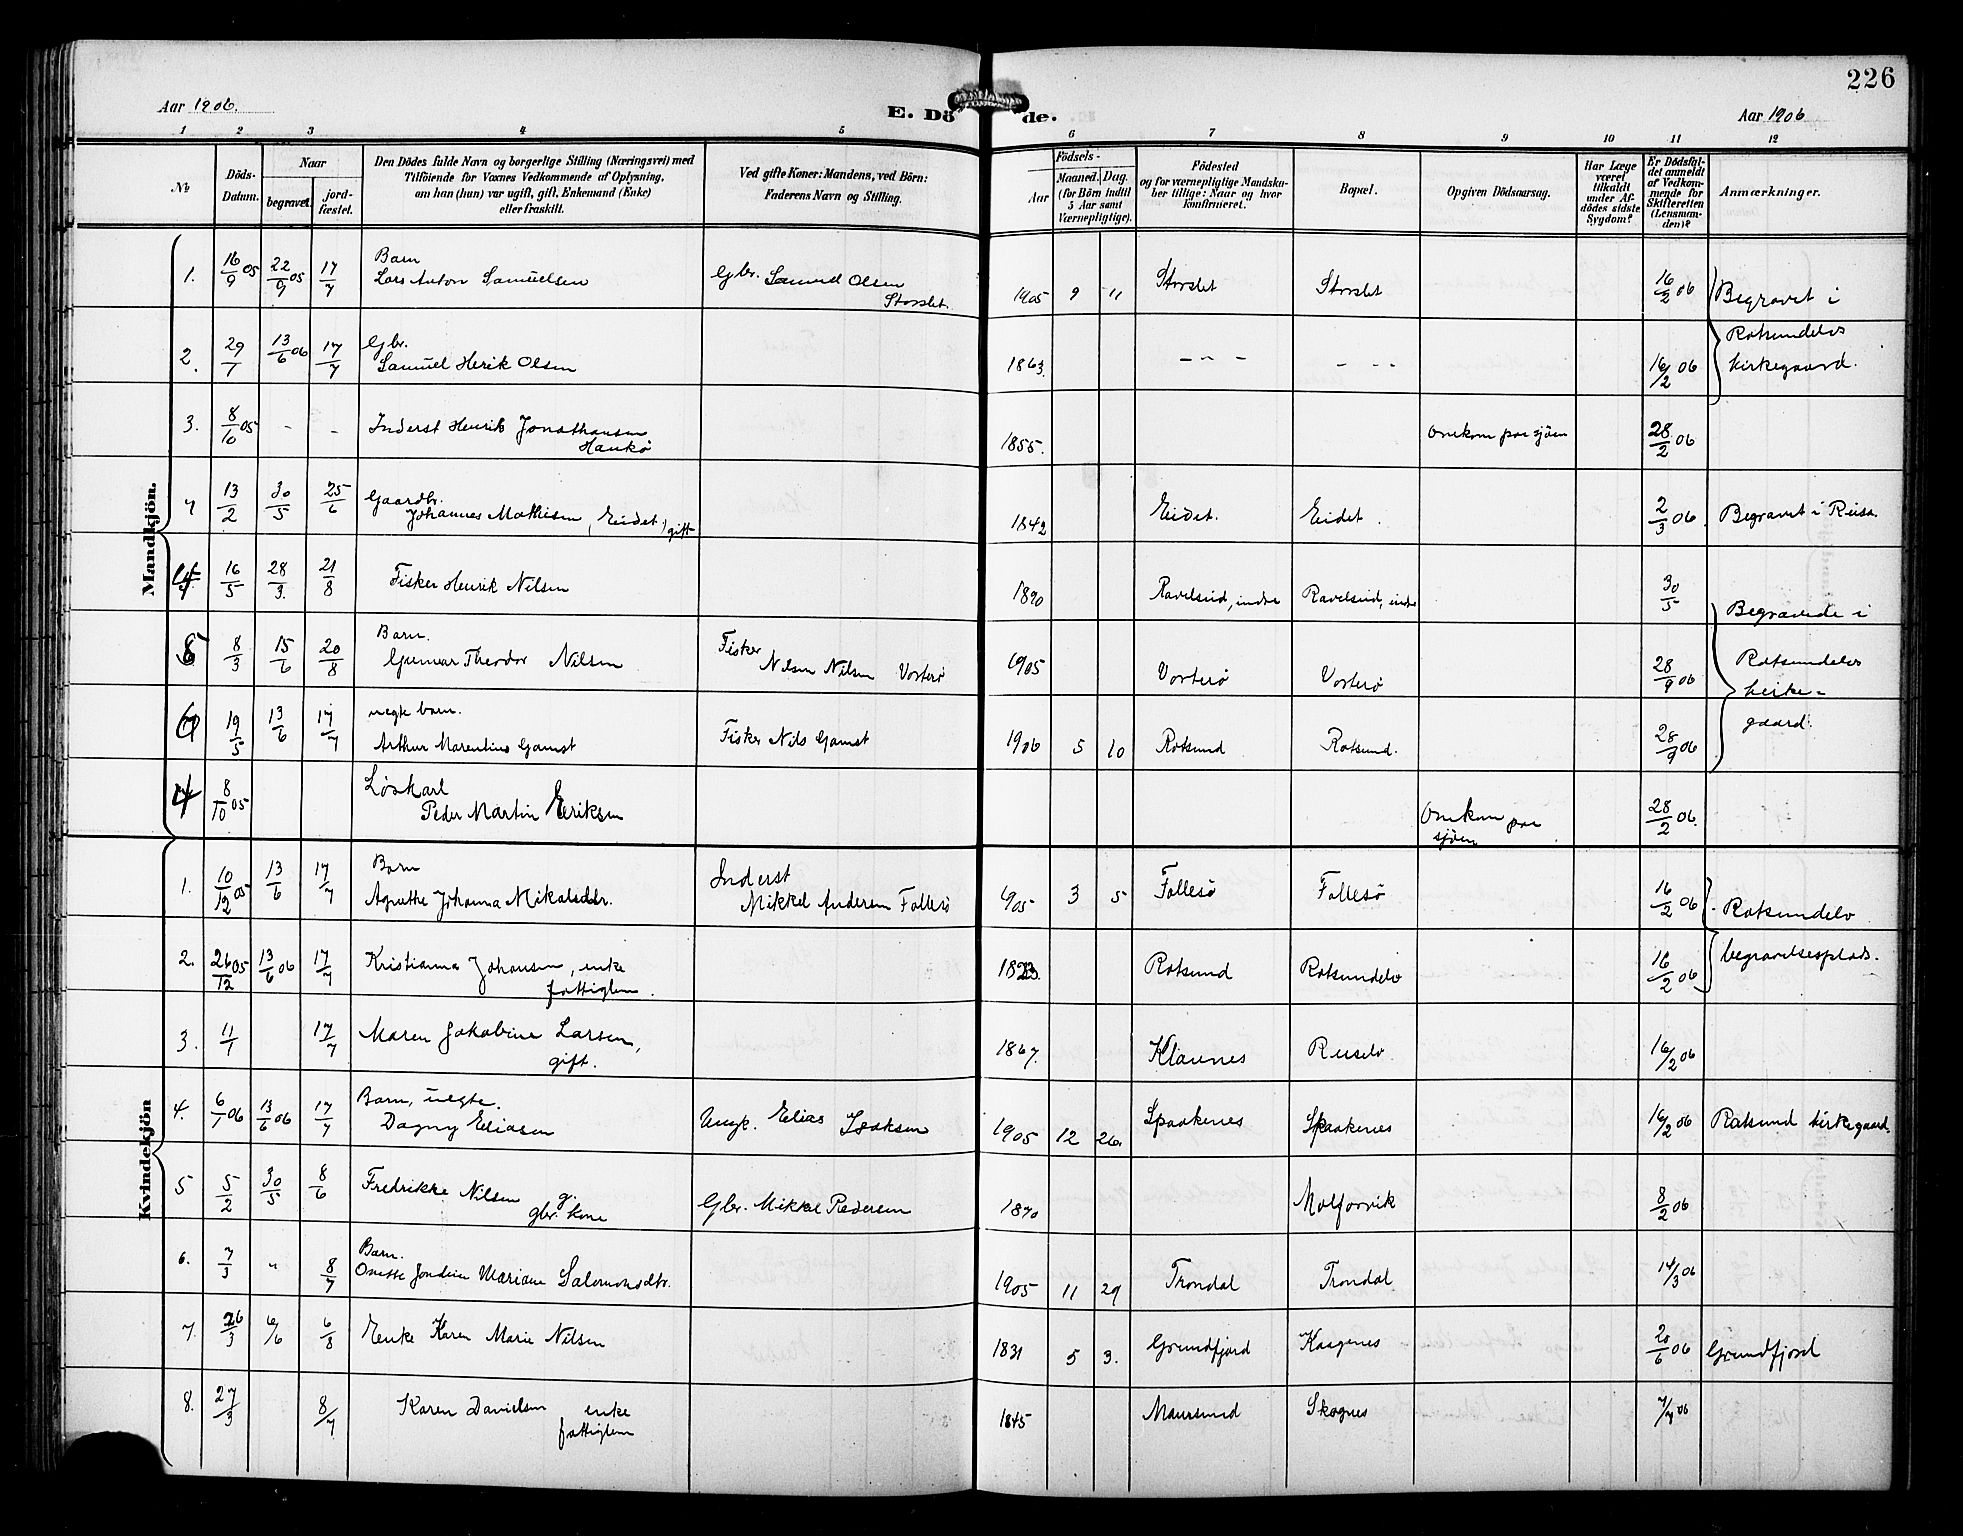 226
Aar 1906.
E. Dö de.
Aar 1906
1 2 3 4 5 6 7 8 9 10 11 12
No
Döds-Datum.
Naar
begravet.
jord-fæstet.
Den Dödes fulde Navn og borgerlige Stilling (Næringsvei) med
Tilföiende for Voxnes Vedkommende af Oplysning,
om han (hun) var ugift, gift, Enkemand (Enke)
eller fraskilt.
Ved gifte Koner: Mandens, ved Börn:
Faderens Navn og Stilling.
Födsels-
Aar
Maaned. Dag.
(for Börn indtil
5 Aar samt
Værnepligtige).
Födested
og for værnepligtige Mandska-
ber tillige: Naar og hvor
konfirmeret.
Bopæl.
Opgiven Dödsaarsag.
Har Læge
været
tilkaldt
under Af-
dödes sidste
Sygdom?
Er Dödsfal-
det anmeldt
af Vedkom-
mende for
Skifteretten
(Lensman-
den)?
Anmærkninger.
Mandkjön.
1. 16/9 05 22/9 05 17/7 Barn Lars Anton Samuelsen Gbr. Samuel Olsen Storslet 1905 9 11 Storslet Storslet 16/2 06 Begravet i
2. 29/1 13/6 06 17/7 Gbr. Samuel Herik Olsen 1863. - " - - - - 16/2 06 Rotsundelvs kirkegaard.
3. 8/10 05 - - Inderst Henrik Jonathansen Haukø 1855. Omkom paa sjöen 28/2 06
4 13/2 30/5 25/6 Gaardbr. Johannes Mathisen (Eidet) gift 1842 Eidet. Eidet. 2/3 06. Begravet i Reisa.
16/5 28/3. 21/8 Fisker Henrik Nilsen 1890 Ravelseid, indre Ravelseid, indre 30/5 Begravede i
8/3 15/6 20/8 Barn. Gunnar Theodor Nilsen Fisker Nilsen Nilsen Vorterø 1905 Vorterø Vorterø 28/9 06 Rotsundelvs kirke-
19/5 13/6 17/7 uegte barn. Arthur Marentius Gamst Fisker Nils Gamst 1906 5 10 Rotsund Rotsund. 28/9 06 gaard.
8/10 05 Løskarl Peder Martin Eriksen Omkom paa sjöen. 28/2 06.
Kvindekjön
1. 10/12 05 13/6 17/7 Barn Agnethe Johanna Mikalsdtr. Inderst Mikkel Andersen Follesø 1905 3 5 Follesø Follesø 16/2 06 Rotsundelv
2. 26/12 05 13/6 06 17/7 Kristianna Johansen, enke fattiglem. 1823. Rotsund Rotsundelv 16/2 06 begravelsesplads.
3. 11/1 17/7 Maren Jakobine Larsen, gift. 1867. Klaunes Reiselv. 16/2 06
4. 6/1 06 13/6 06 17/7 Barn, uegte. Dagny Eliasen Ungk. Elias Isaksen 1905 12 26. Spaakenes Spaakenes 16/2 06 Rotsund kirkegaard.
5 5/2 30/5 8/6 Fredrikke Nilsen g. gbr. kone Gbr. Mikkel Pedersen 1870 Molforvik 8/2 06
6. 7/3 " 8/7 Barn. Mariane Salomonsdtr. 1905 11 29 Trondal Trondal 14/3 06
7. 26/3 6/6 6/8 Enke Karen Marie Nilsen 1831 5 3. Grundfjord Kaagenes 20/6 06 Grundfjord
8. 27/3 8/7 Karen Danielsen enke fattiglem 1845 Maursund Skognes 7/7 06